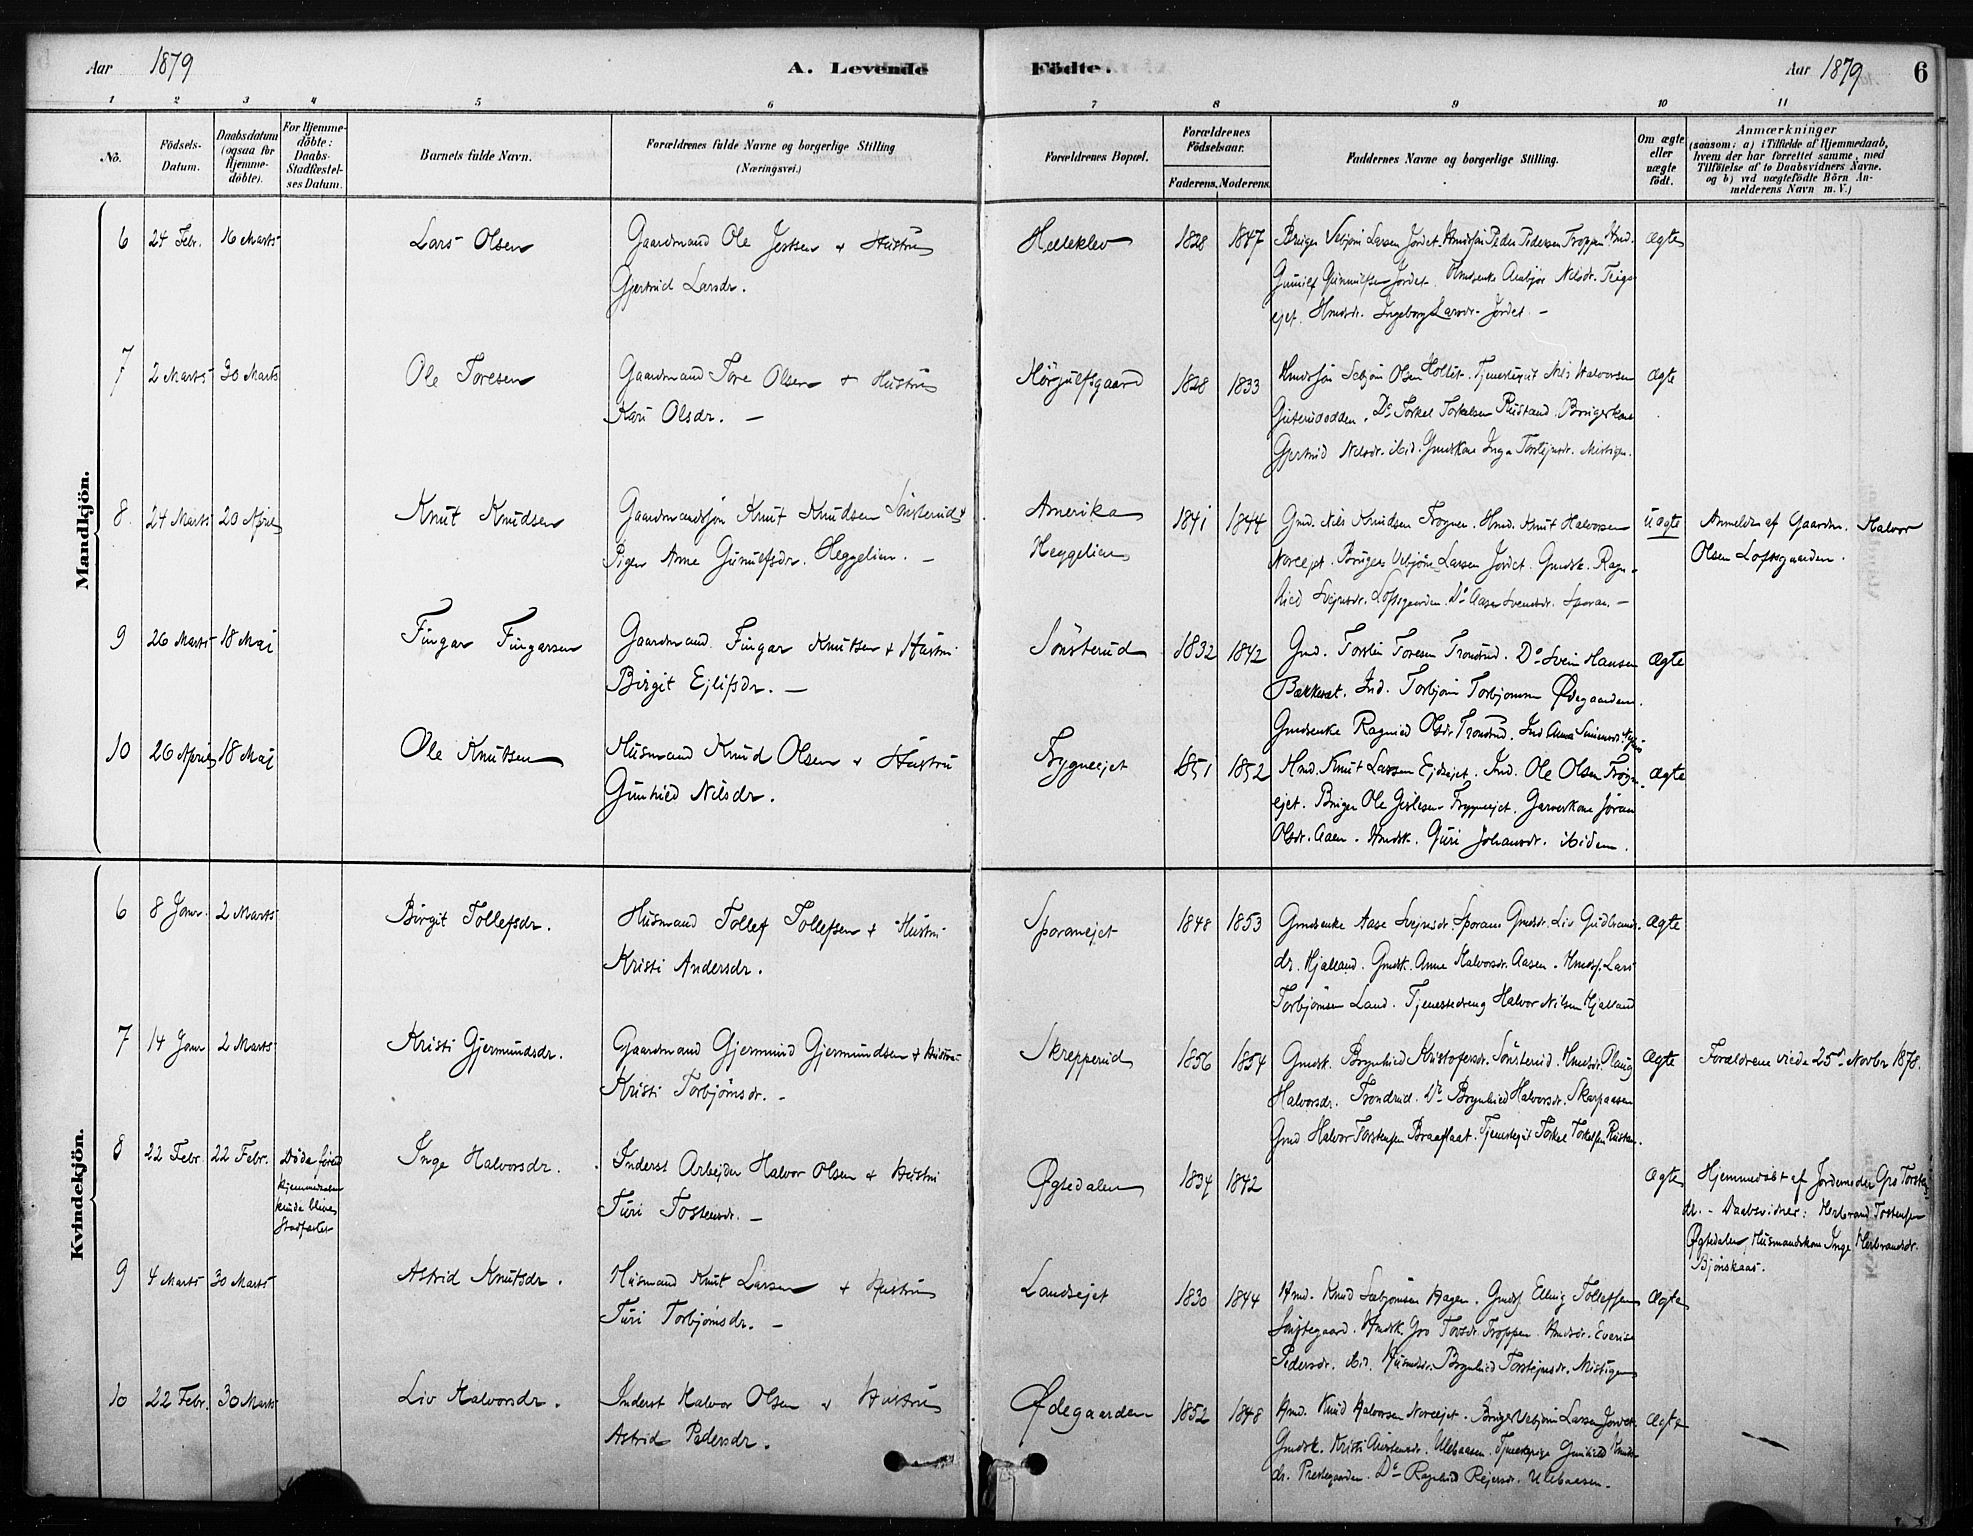 Aar 1879
A. Levende Födte.
Aar 1879
6
1 2 3 4 5 6 7 8 9 10 11
No.
Födsels-Datum.
Daabsdatum (ogsaa for Hjemme-döbte).
For Hjemme-döbte: Daabs-Stadfæstel-ses Datum.
Barnets fulde Navn.
Forældrenes fulde Navne og borgerlige Stilling (Næringsvei.)
Forældrenes Bopæl.
Forældrenes Födselsaar.
Faderens. Moderens.
Faddernes Navne og borgerlige Stilling.
Om ægte eller uægte født.
Anmærkninger
(saasom: a) i Tilfælde af Hjemmedaab,
hvem der har forrettet samme, med
Tilföielse af to Daabsvidners Navne.
og b) ved uægtefödte Börn An-
melderens Navn m. V.)
Mandkjön.
6 24 Febr. 16 Marts Lars Olsen
Gaardmand Ole Jertsen + Hustru
Gjertrud Larsdr.
Helleklev 1828 1847
Bruger Sebjörn Larsen Jordet. Hmdssön Peder Pedersen Troppen Hmd.
Gunulf Gunnulfsen Jordet.
ejet. Hmdsdr. Ingeborg Larsdr. Jordet. —
Ægte
7 2 Marts 30 Marts Ole Toresen
Gaardmand Tore Olsen + Hustru
Kari Olsdr. —
Hörjulfsgaard 1828 1833
Olsen Tjenestegut Nils Halvorsen
Do Torkel Torkelsen Rustand. Brugerkone
Gjertrud Nelsdr. ibid. Gmdkone Inga Torstejnsdr. Mistegen.
Ægte
8 24 Marts 20 April Knut Knudsen
Gaardmandssön Knut Knudsen Sönsterud +
Pigen Anne Gunulfsdr. Heggelien. —
Amerika
Heggelien
1841 1844
Gmd. Nils Knudsen Frogner. Hmd. Knut Halvorsen
Noreejet. Bruger Vebjörn Larsen Jordet. Gmdsk. Ragn-
hild Svejnsdr. Loftsgaarden. Do Aase Svensdr. Sporan. —
Uægte
Anmeldn af Gaardm. Halvor
Olsen Loftsgaarden.
9 26 Marts 18 Mai Fingar Fingarsen
Gaardmand Fingar Knutsen + Hustru
Birgit Ejlifsdr. —
Sönsterud 1832 1842
Gmd. Torsten Toresen Trondrud. Do Svein Hansen
Ind. Torbjörn Torbjörnsen Ödegaarden.
Gmdsenke Ragnild Olsdr. Trondrud. Ind Anna
Ægte
10 26 April 18 Mai Ole Knutsen
Husmand Knud Olsen + Hustru
Gunhild Nilsdr.
Frygneejet 1851 1852
Hmd. Knut Larsen Ejdsejet. Ind. Ole Olsen Frogn-
ejet. Bruger Ole Frygneejet. Garverkone Jöran
Olsdr. Aaen. Hmdsk. Guri Johansdr. ibidem.
Ægte
Kvindekjön.
6 8 Janr. 2 Marts Birgit Tollefsdr.
Husmand Tollef Tollefsen + Hustru
Kristi Andersdr.
Sporanejet 1848 1853
Gmdsenke Aase Svejnsdr. Sporan. Gmdsdr. Liv Gudbrands-
dr. Hjalland. Gmdsk. Anne Halvorsdr. Aasen. Hmdss. Lars
Torbjörnsen Land. Tjenestedreng Halvor Nilsen Hjalland
Ægte
7 14 Janr 2 Marts Kristi Gjermundsdr.
Gaardmand Gjermund Gjermundsen + Hustru
Kristi Torbjörnsdr. —
Skrepperud 1856 1854
Gmdsk. Brynhild Kristofersdr. Sönsterud. Hmdsdr. Olaug
Halvorsdr. Trondrud. Do Brynhild Halvorsdr. Skarpaasen
Gmd Halvor Torstensen Braaflaat. Tjenestegut Torkel Torkelsen Rustan.
Ægte
Forældrene viede 25de Novbr 1878.
8 22 Febr 22 Febr.
Döde förend
hjemmedaaben
kunde blive
stadfæstet
Inge Halvorsdr.
Inderst Arbejder Halvor Olsen + Hustru
Turi Tostensdr. —
Ögtedalen 1834 1842
Ægte
Hjemmedöbt af Jordemoder Gro Torstens-
dr. — Daabsvidner: Herbrand Tostensen
Ögtedalen, Husmandskone Inge Herbrandsdr.
Björnskaas.
9 4 Marts 30 Marts Astrid Knutsdr.
Husmand Knut Larsen + Hustru
Turi Torbjörnsdr. —
Landsejet 1830 1844
Hmd. Knud Sebjörnsen Hagen. Gmdss. Elling Tollefsen
Hmdsk. Gro Tovsdr. Troppen. Hmdsdr.
Pedersdr. ibid. Husmdsdr. Brynhild Torstejnsdr. Mistegen
Ægte
10 22 Febr. 30 Marts Liv Halvorsdr.
Inderst Halvor Olsen + Hustru
Astrid Pedersdr.
Ödegaarden 1852 1848
Hmd. Knud Halvorsen Noreejet. Bruger Vebjörn Larsen Jordet.
Gmdsk. Kristi Ulebaasen. Tjenestepige Gunhild Knuds-
dr. Prestegaarden. Do Ragnhild Rejersdr. Ulebaasen.
Ægte